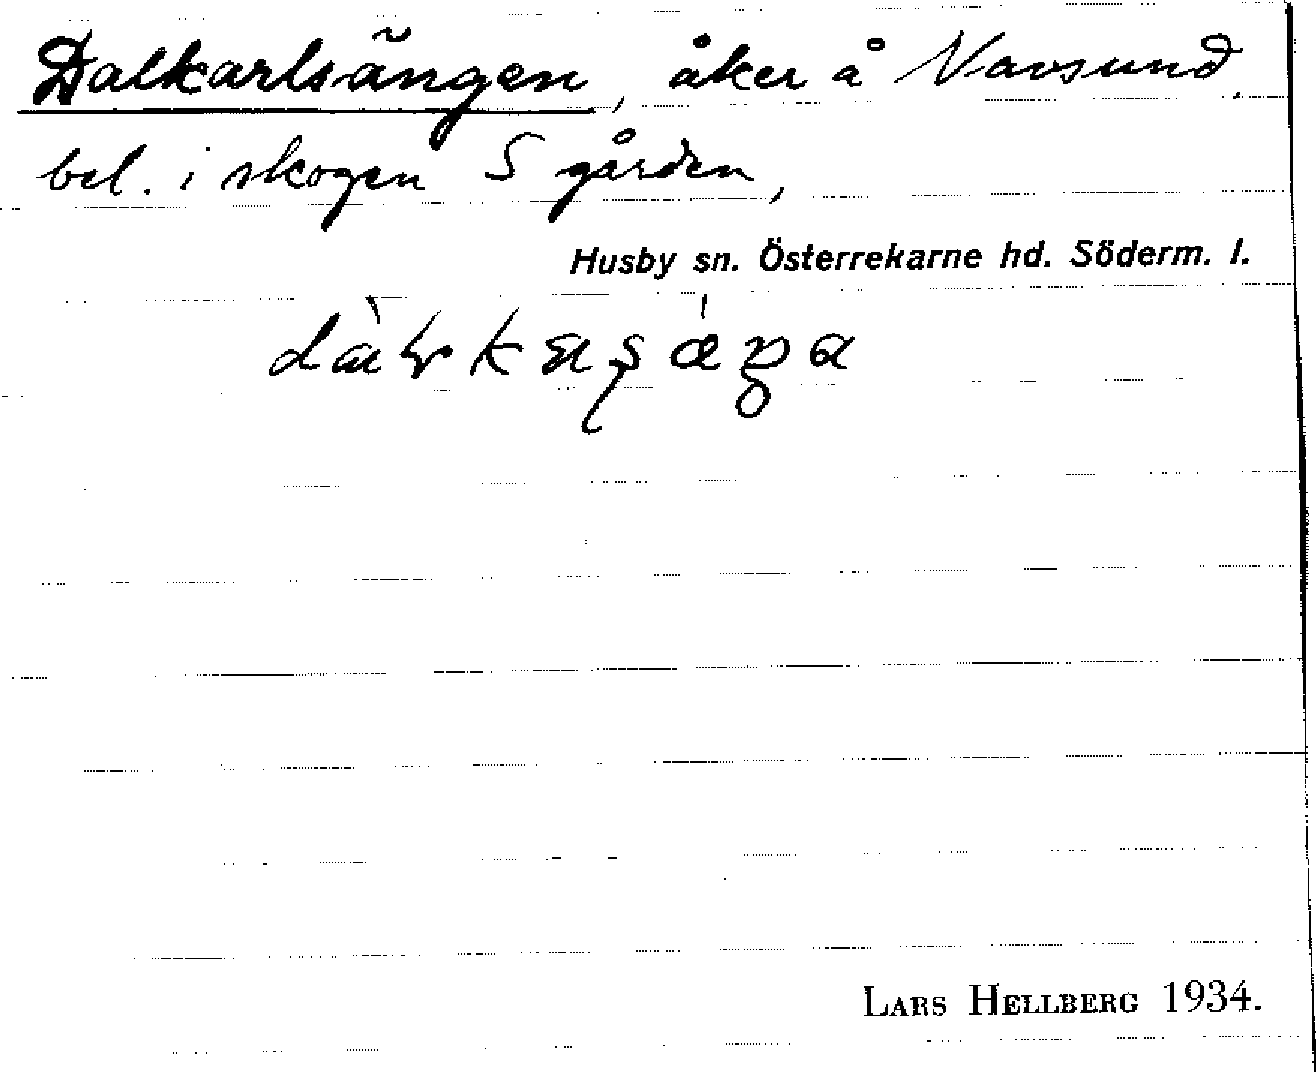 Dalkarlsängen, åker å Vavsund,
bel. i skogen S gården,
Husby sn. Österrekarne hd. Söderm. l.
LARS HELLBERG 1934.